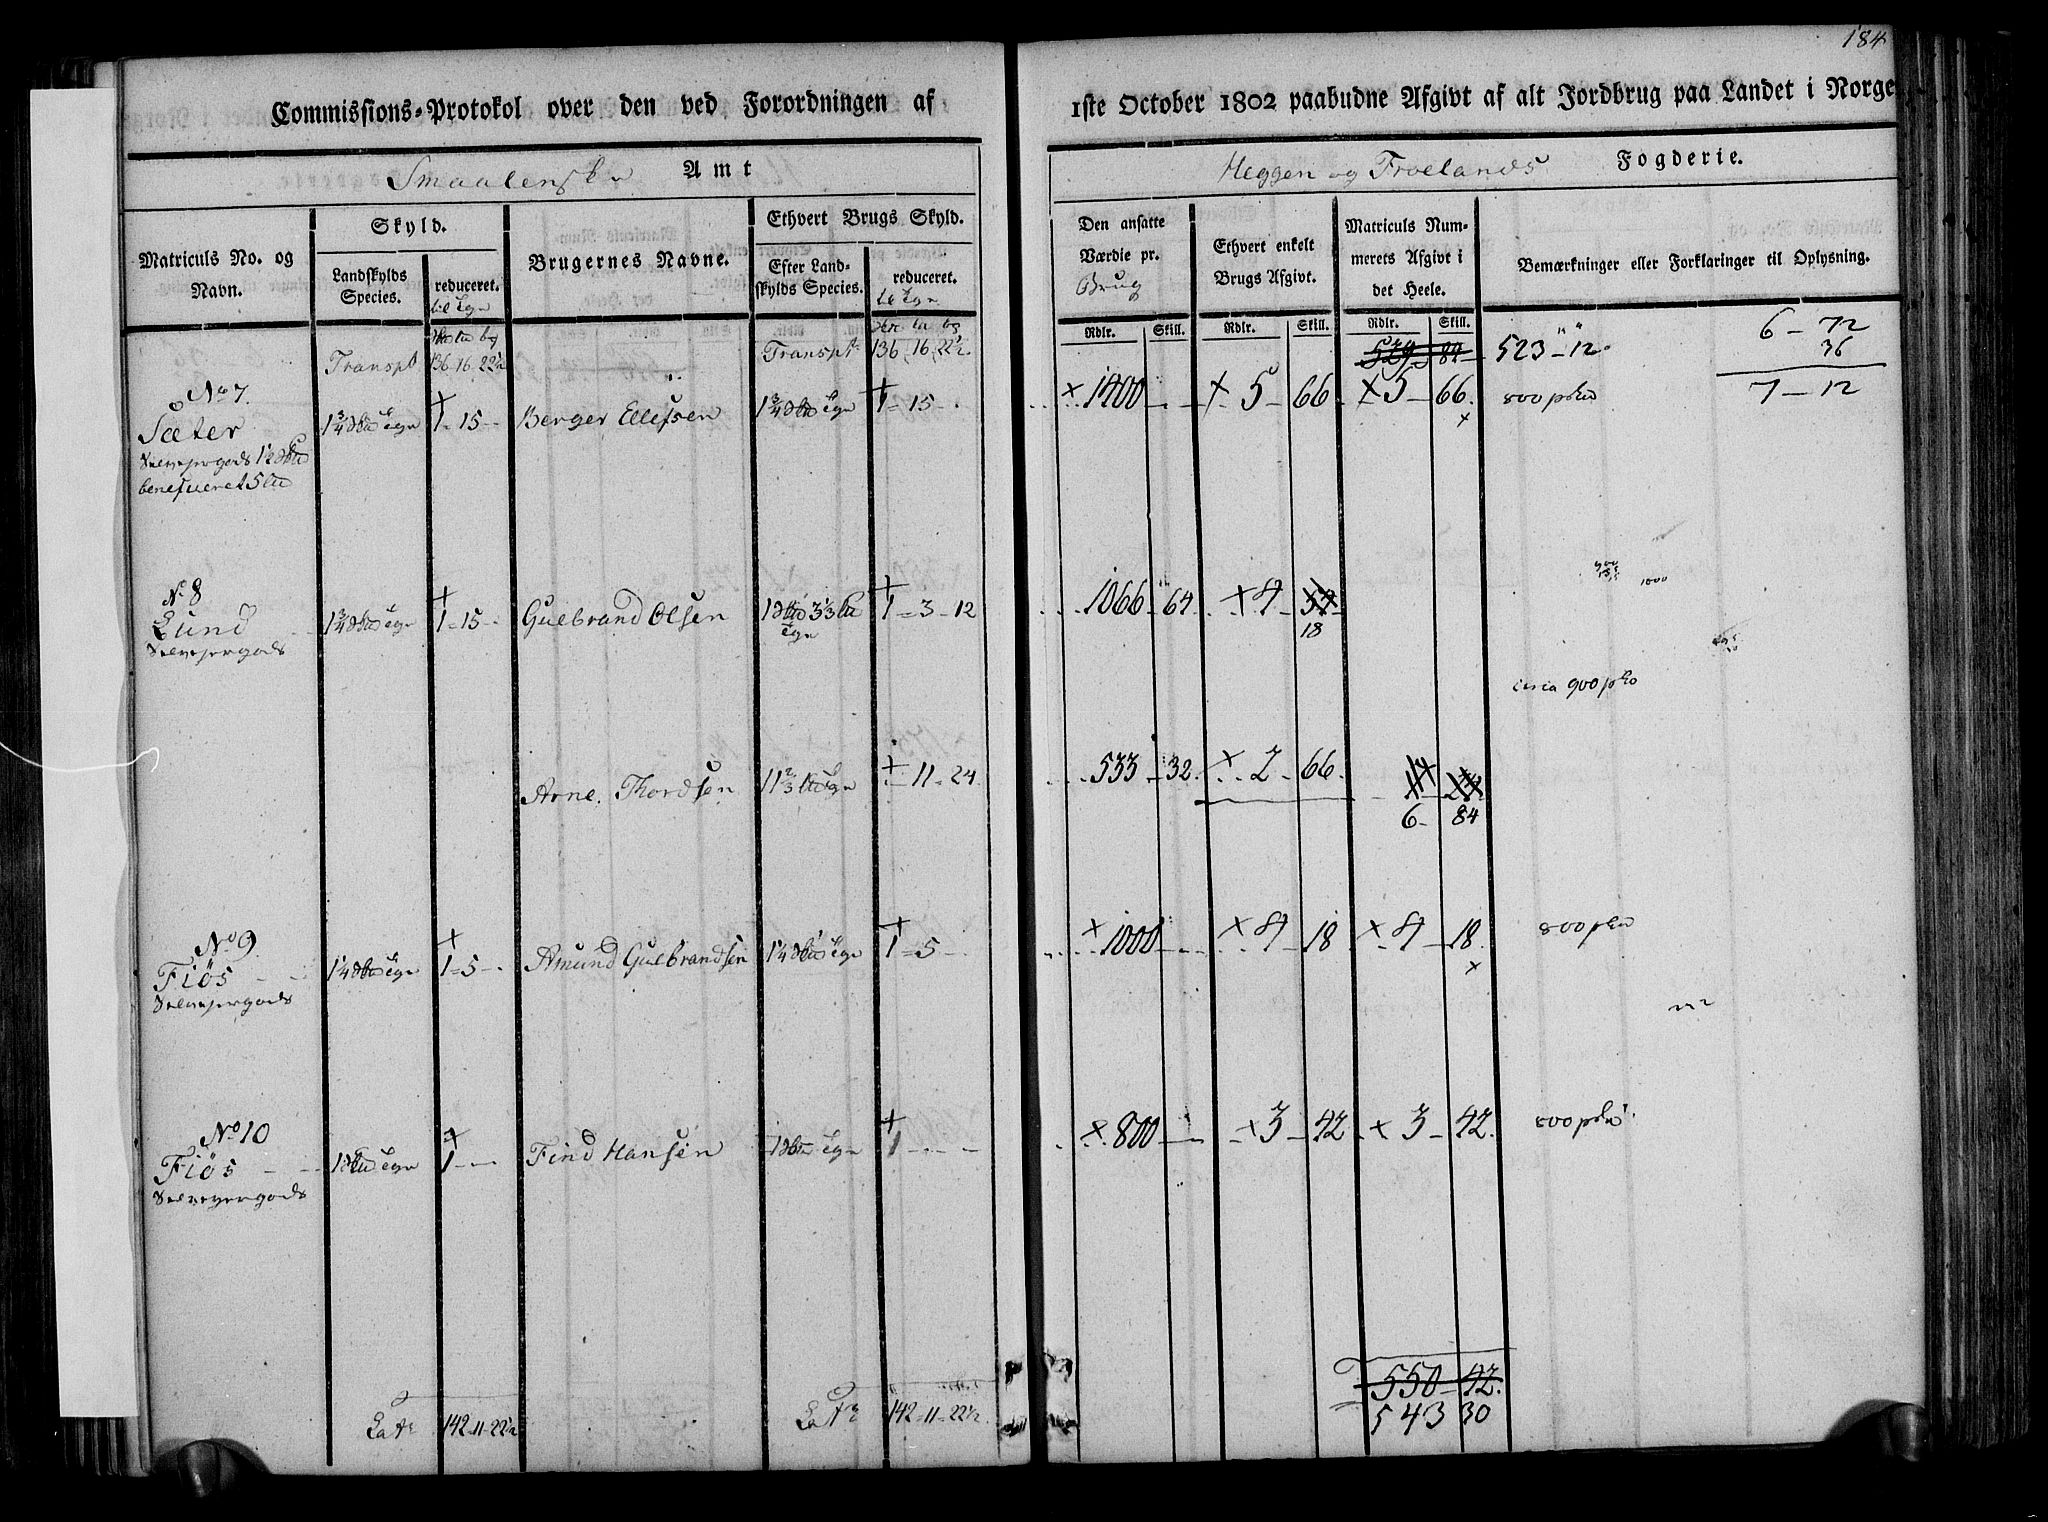 184
Commissions-Protokol over den ved Forordningen af
1ste October 1802 paabudne Afgivt af alt Jordbrug paa Landet i Norge
Smaalenske Amt
Heggen og Froelands Fogderie.
Matriculs No. og Navn.
Skyld.
Landskylds Species.
reduceret.
Brugernes Navne.
Ethvert Brugs Skyld.
Efter Landskylds Species.
reduceret.
Den ansatte Værdie pr. Brug
Ethvert enkelt Brugs Afgivt.
Matriculs Nummerets Afgivt i det Heele.
Bemærkninger eller Forklaringer til Oplysning.
Rdlr. Skill. Rdlr. Skill. Rdlr. Skill.
Transpt 136-16-22½ Transpt 136 16 22½ 523-12
6-72
36
7-12
No 7.
Sæter 1¾ 1-15 Berger Ellefsen 1¾ 1-15 1400 5-66 5-66
No 8
Lund 1¾ 1-15 Guebrand Olsen 1-3-12 1066-64 4
18
circa 900
Arne Thordsen 11-24 533-32 2-66
6-84
No 9
Fiös 1¼ 1-5 Amund Guebrandsen 1¼ 1-5 1000 4-18 4-18
No 10
Fiös 1 1 Find Hansen 1 1 800 3-42 3-42
550-42
Lat 142-11-22½ Lat 142-11-22½ 543 30